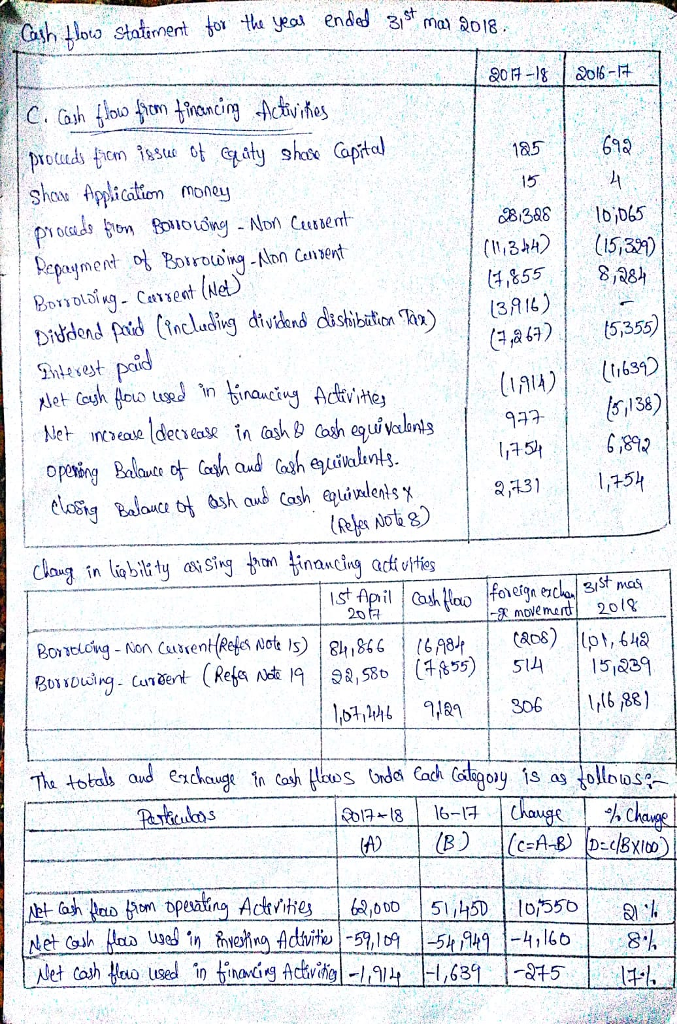 Cash flow statement for the year ended 31st mar 2018.
2017-18 2016-17
C. Cash flow from financing Activities
proceeds from issue of Equity share Capital 185 692
Share Application money 15 4
proceeds from Borrowing - Non Current 28,328 10,065
Repayment of Borrowing - Non Current (11,344) (15,329)
Borrowing - Current (Net) (7,855 8,284
Dividend paid (including dividend distribution Tax) (3,916) -
Interest paid (7,267) (5,355)
Net Cash flow used in financing Activities (1,914) (1,639)
Net increase/decrease in cash & cash equivalents 977 (5,138)
opening Balance of Cash and Cash equivalents. 1,754 6,892
closing Balance of cash and cash equivalents 2,731 1,754
(Refer Note 8)
Chang in liability arising from financing activities
1st April 2017 Cash flow foreign exchan -ge movement 31st mar 2018
Borrowing - Non Current (Refer Note 15) 84,866 16,984 (208) 1,01,642
Borrowing - Current (Refer Note 19 22,580 (7,855) 514 15,239
1,07,446 9,129 306 1,16,881
The totals and exchange in cash flows Under Each Category is as follows:-
Particulars 2017-18 16-17 Change % Change
(A) (B) (C=A-B) (D=C/B×100)
Net Cash flow from operating Activities 62,000 51,450 10,550 21%
Net Cash flow used in Investing Activitie -59,109 -54,949 -4,160 8%
Net Cash flow used in financing Activities -1,914 -1,639 -275 17%